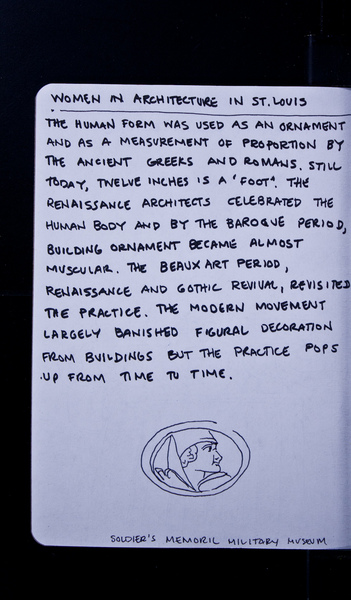 WOMEN IN ARCHITECTURE IN ST. LOUIS
THE HUMAN FORM WAS USED AS AN ORNAMENT
AND AS A MEASUREMENT OF PROPORTION BY
THE ANCIENT GREEKS AND ROMANS. STILL
TODAY, TWELVE INCHES IS A "FOOT". THE
RENAISSANCE ARCHITECTS CELEBRATED THE
HUMAN BODY AND BY THE BAROQUE PERIOD,
BUILDING ORNAMENT BECAME ALMOST
MUSCULAR. THE BEAUX ART PERIOD,
RENAISSANCE AND GOTHIC REVIVAL, REVISITED
THE PRACTICE. THE MODERN MOVEMENT
LARGELY BANISHED FIGURAL DECORATION
FROM BUILDINGS BUT THE PRACTICE POPS
UP FROM TIME TO TIME.
SOLDIER'S MEMORIL MILITARY MUSEUM